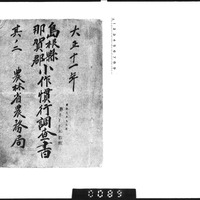 大正十一年
島根縣
那賀郡
小作慣行調査書
其ノ二
農林省農務局
0089